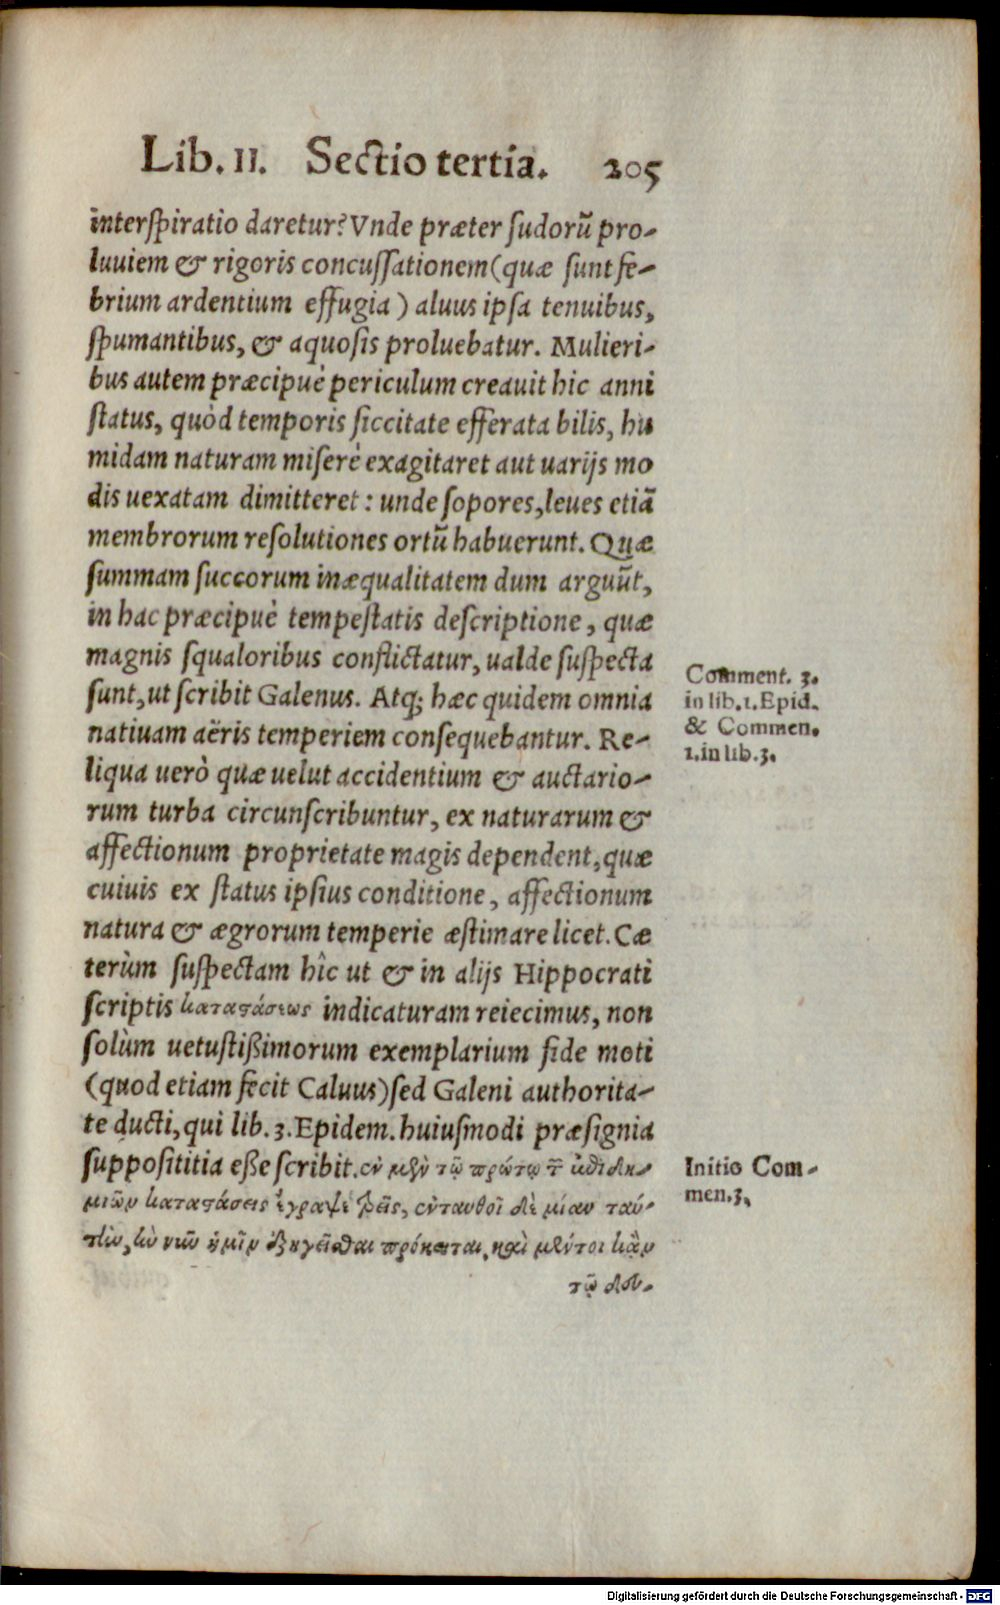 Lib. II. Sectio tertia. 205
interſpiratio daretur? Vnde præter ſudorũ pro-
luuiem & rigoris concuſſationem (quæ ſunt fe-
brium ardentium effugia) aluus ipſa tenuibus,
ſpumantibus, & aquoſis proluebatur. Mulieri-
bus autem præcipuè periculum creauit hic anni
ſtatus, quòd temporis ſiccitate efferata bilis, hu
midam naturam miſerè exagitaret aut uarijs mo
dis uexatam dimitteret: unde ſopores, leues etiã
membrorum reſolutiones ortũ habuerunt. Quæ
ſummam ſuccorum inæqualitatem dum arguũt,
in hac præcipuè tempeſtatis deſcriptione, quæ
magnis ſqualoribus conflictatur, ualde ſuſpecta
ſunt, ut ſcribit Galenus. Atq; hæc quidem omnia
natiuam aëris temperiem conſequebantur. Re-
liqua uerò quæ uelut accidentium & auctario-
rum turba circunſcribuntur, ex naturarum &
affectionum proprietate magis dependent, quæ
cuiuis ex ſtatus ipſius conditione, affectionum
natura & ægrorum temperie æſtimare licet. Cæ
terùm ſuſpectam hîc ut & in alijs Hippocrati
ſcriptis καταϛάσεως indicaturam reiecimus, non
ſolùm uetuſtißimorum exemplarium fide moti
(quod etiam fecit Caluus) ſed Galeni authorita-
te ducti, qui lib. 3. Epidem. huiuſmodi præſignia
ſuppoſititia eße ſcribit. ἐν μὲν τῷ πρώτῳ τῶν ἐπιδη-
μιῶν καταϛάσεις ἔγραψε τρεῖς, ἐνταυθοῖ δὲ μίαν ταύ-
την, ἣν νῦν ἡμῖν ἐξηγεῖσθαι πρόκειται, καὶ μέντοι κἂν
τῷ δευ-
Comment. 3.
in lib. 1. Epid.
& Commen.
1. in lib. 3.
Initio Com-
men. 3.
Digitalisierung gefördert durch die Deutsche Forschungsgemeinschaft - DFG